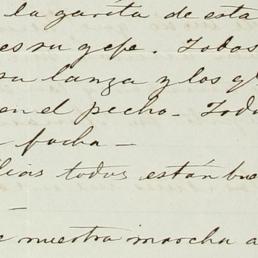 la garita de esta
es su gefe. Todos
su lanza y los q
en el pecho. Tod
facha —
lias todas están bue
—
e nuestra marcha a